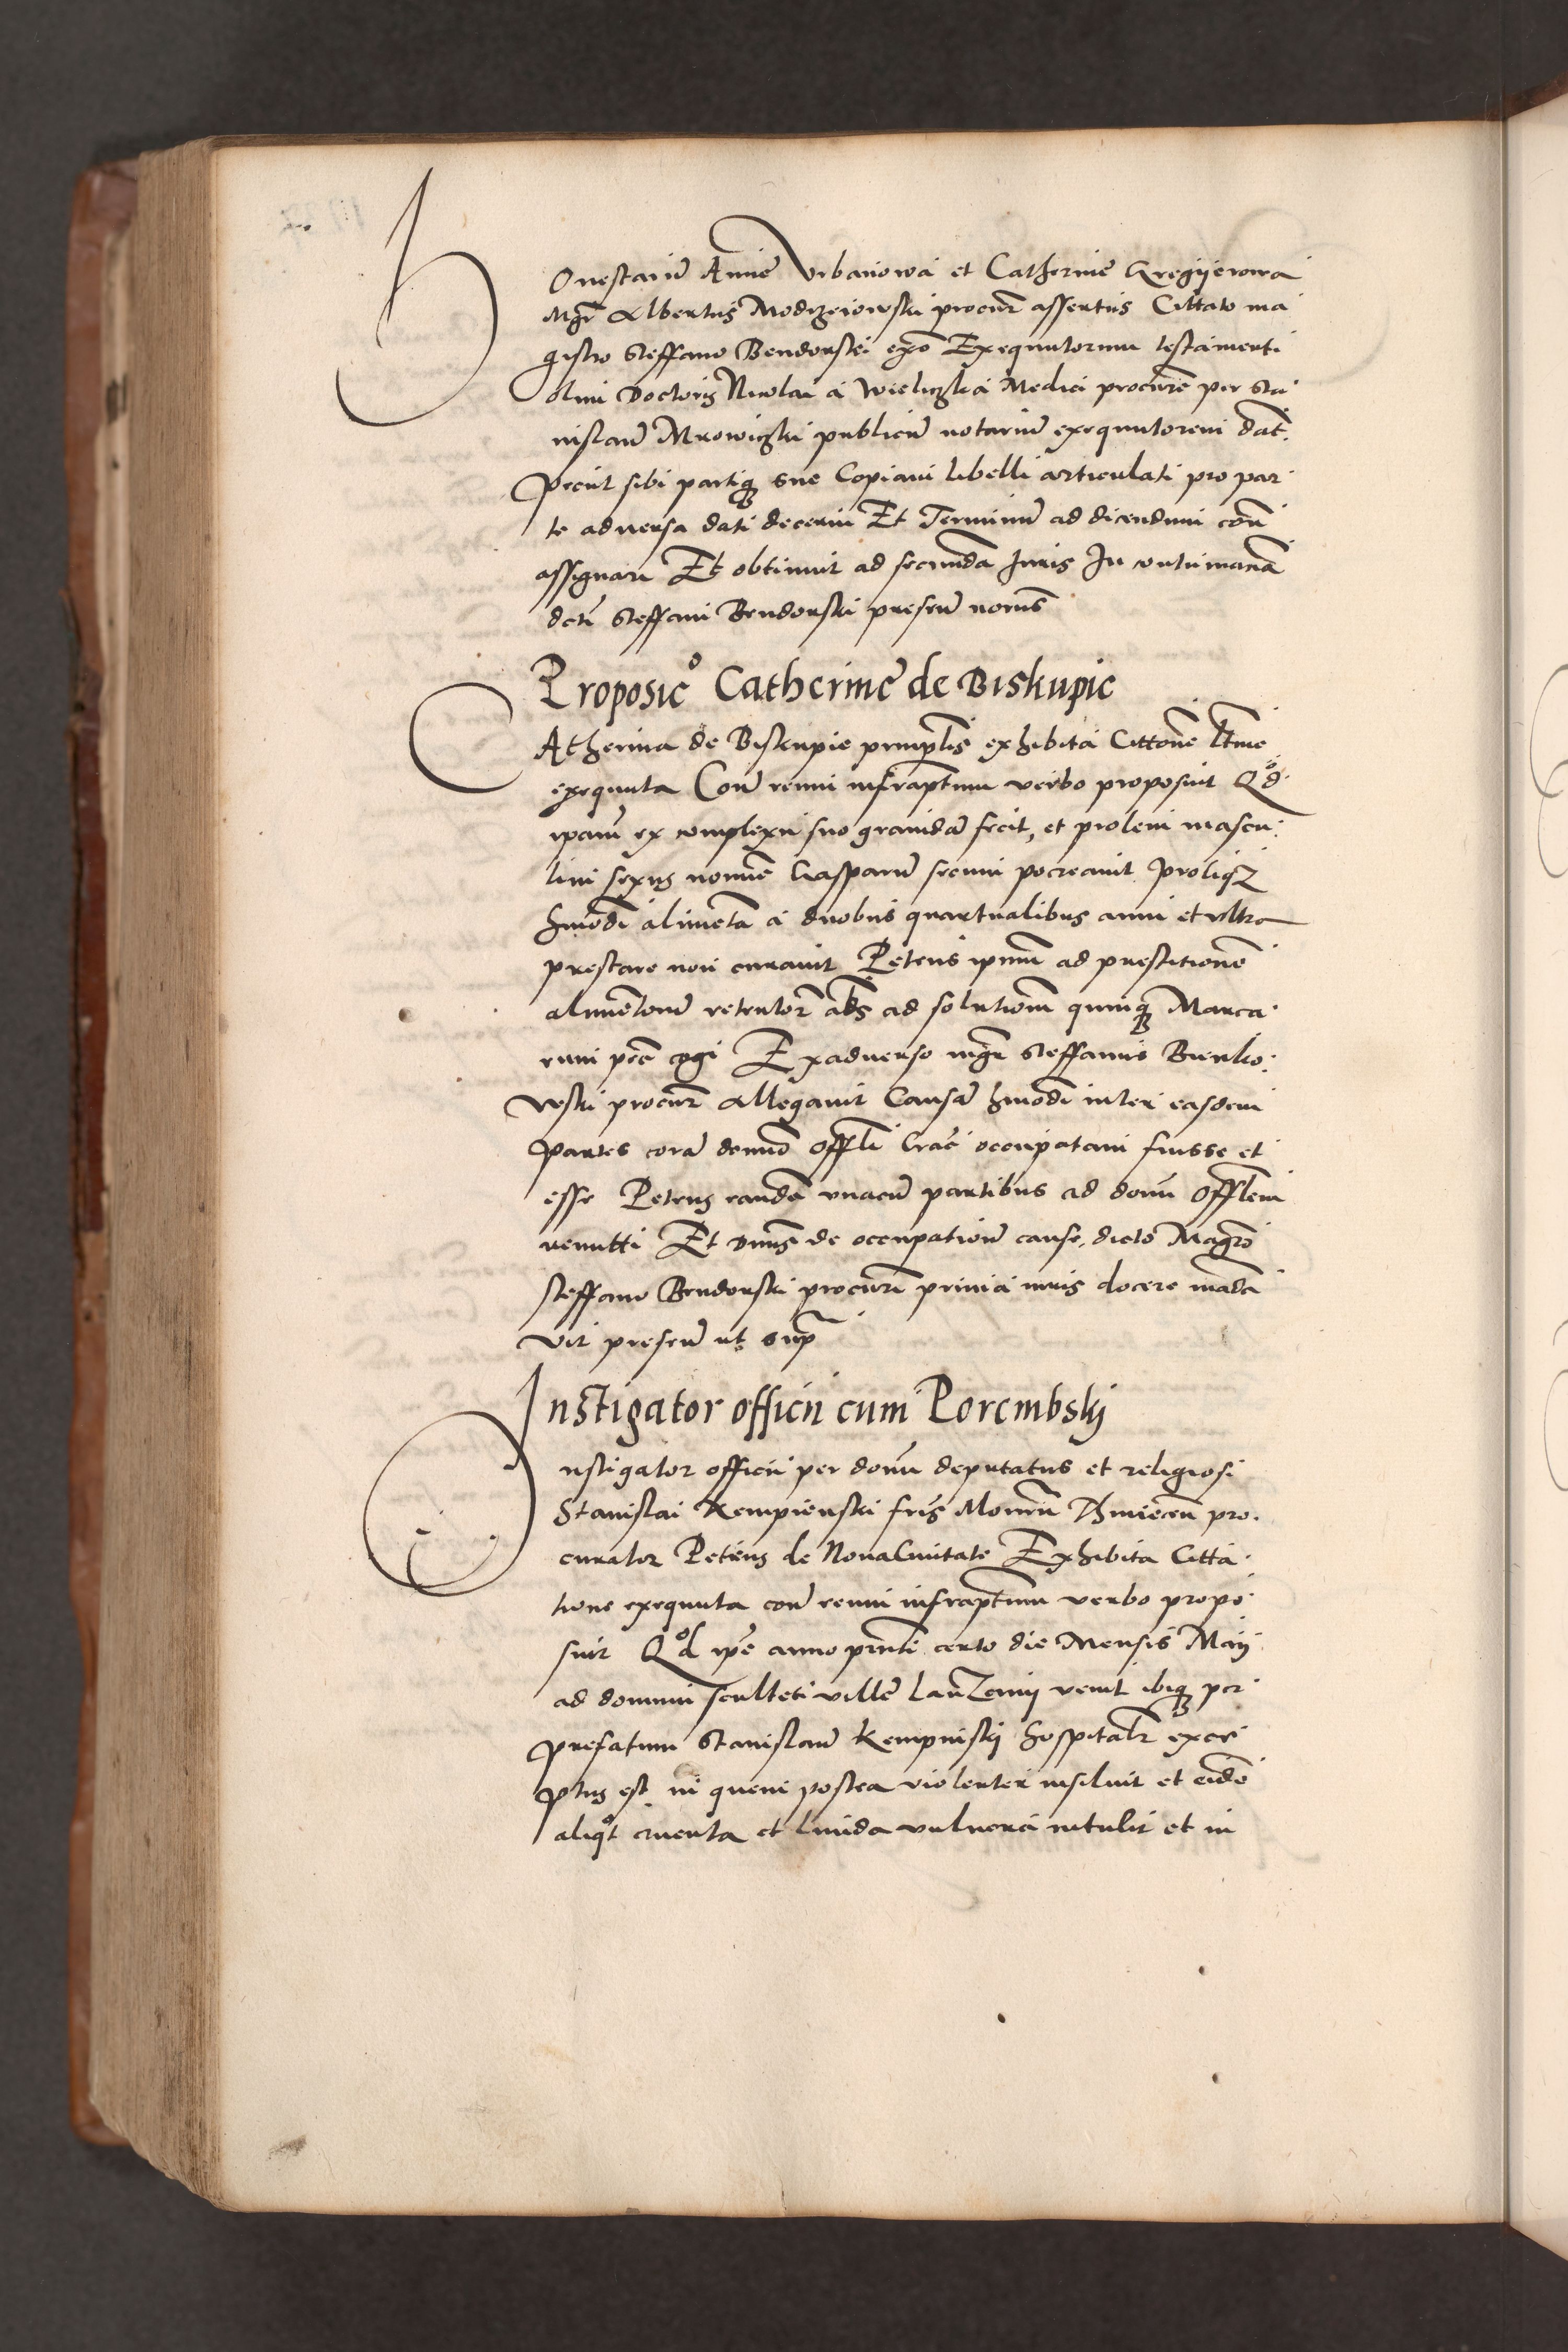 Honestarum Anne Vrbanowa et Catherine Gregyerowa
Mgr Albertus Modrzeiowski procur assertus Cittato ma
gistro Steffano Bendorski expo Exequutorum testamenti
olim Doctoris Nicolai a Wieliczka Medici procure per Sta
nislau Mrowiczki publicu notariu exequutorem dat.
Peciit sibi partiq sue Copiam libelli articulati pro par
te aduersa dati decerni Et Terminu ad dicendum con
assignari Et obtinuit ad secunda Juris In contumacia
dcti Steffani Bendorski presen
Proposico Catherine de Biskupie
CAtherina de Biskupie prinplis exhibita Cittone ltme
exequuta Con reum infraptum verbo proposuit Qd
ipam ex complexu suo grauida fecit, et prolem mascu:
lini sexus nomine Gasparu secum pocreauit proliq
hmodi alimeta a duobus quartualibus anni et vltra
prestare non curauit Petens ipum ad prestitione
alimetoru retentor ad solutiom quinq Marca
rum pec cogi Exaduerso mgr Steffanus Bendo:
rski procur Allegauit Causa hmodi inter easdem
partes cora domno Offli Crac occupatam fuisse et
esse Petens eande vnacu partibus ad donu Offlem
remitti Et dnus de occupationu cause, dicto Magro
Steffano Bendorski procuri prima iuris docere mada
vit presen ut sup
Instigator officii cum Porembskij
Instigator officii per donu deputatus et religiosi
Stanislai Kempienski fris Monru Thiniecen pro.
curator Petrus de NouaCiuitate Exhibita Citta
tione exequuta con reum infraptum verbo propo
suit Qd ipe anno pnti certo die Mensis Maij
ad domum sculteti ville venit ibiq per
prefatum Stanislau Kempinskij hospitalr exce
ptus est in quem postea violenter insiluit et eide
aliqt cruenta et liuida vulnera intulit et in